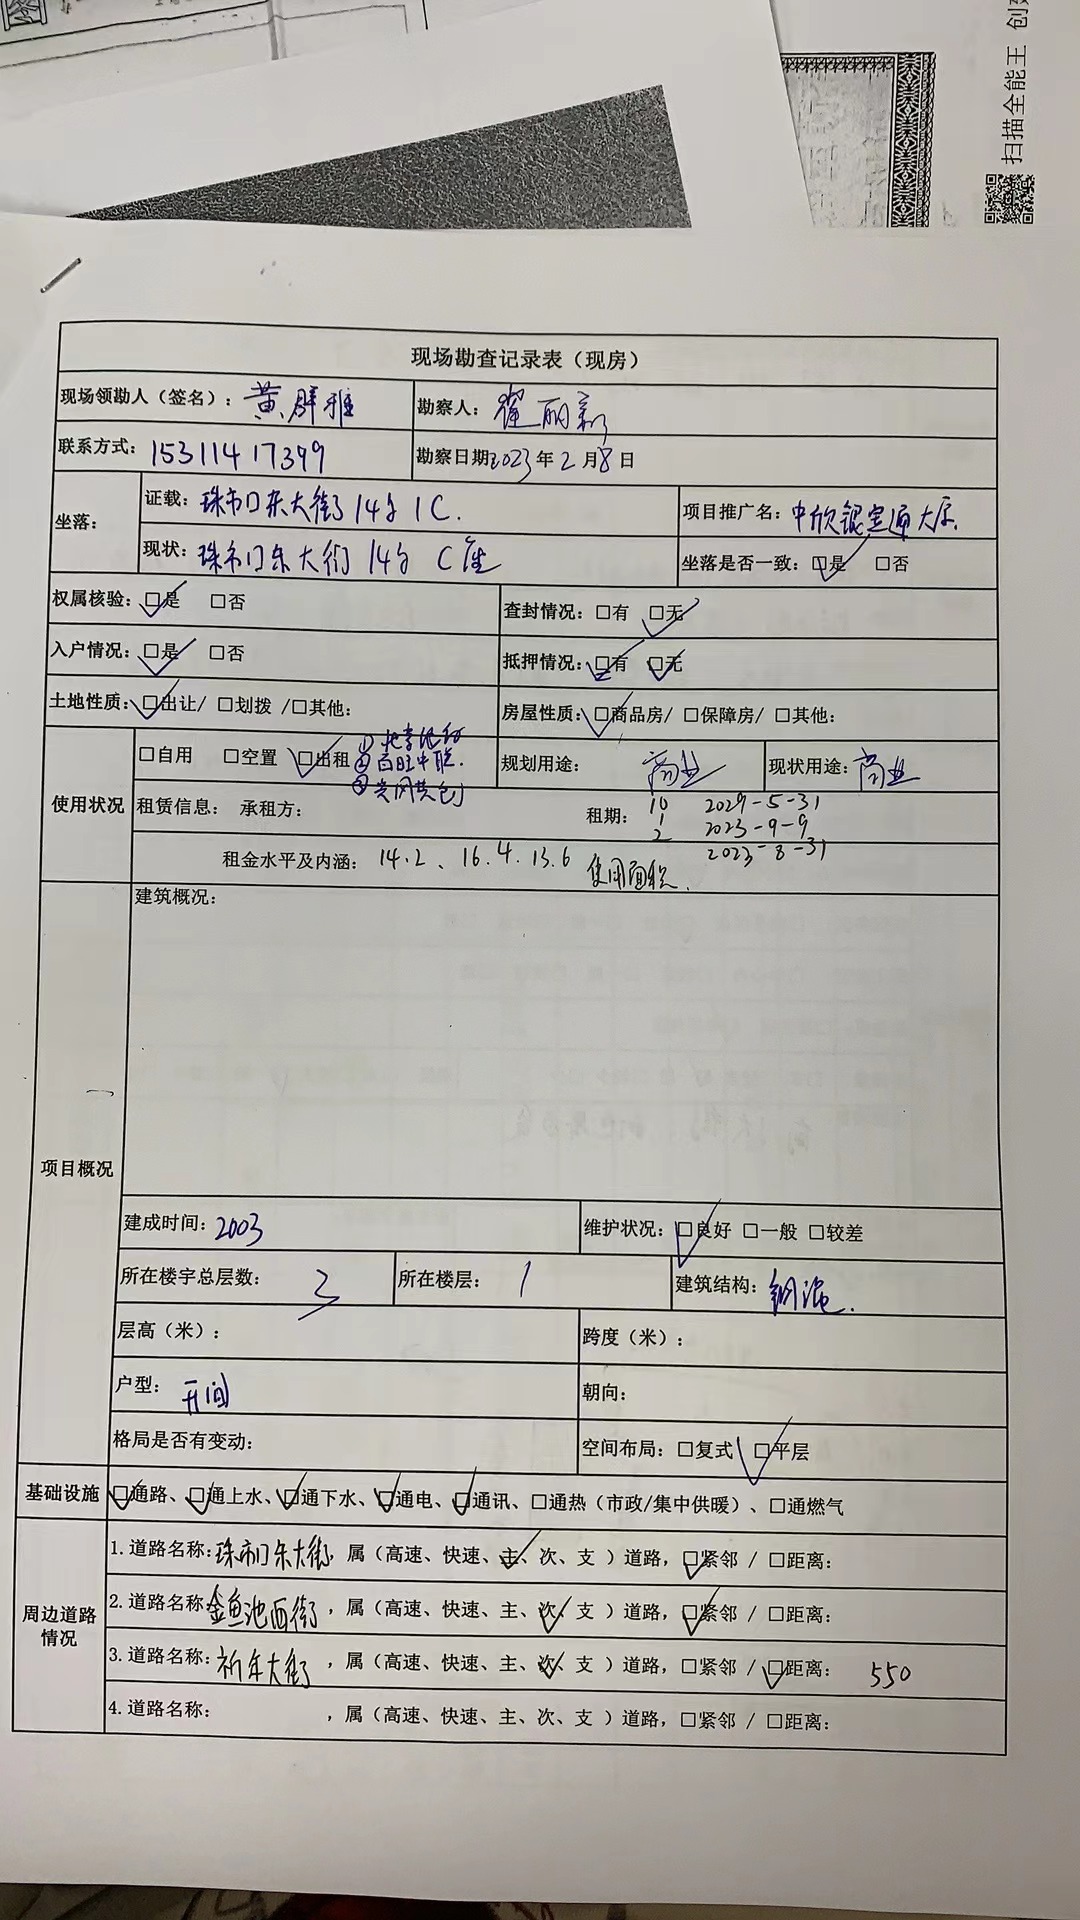 扫描全能王 创建
现场勘查记录表（现房）
现场领勘人（签名）：黄群雅 勘察人：崔丽新
联系方式：15311417399 勘察日期2023年2月8日
坐落：
证载：珠市口东大街14号1C. 项目推广名：中欣银宝通大厦
现状：珠市口东大街14号 C座 坐落是否一致：☑是 □否
权属核验：☑是 □否 查封情况：□有 ☑无
入户情况：☑是 □否 抵押情况：☑有 ☑无
土地性质：☑出让/ □划拨 /□其他： 房屋性质：☑商品房/ □保障房/ □其他：
使用状况
□自用 □空置 ☑出租 ①
②百旺中联.
③ 规划用途：商业 现状用途：商业
租赁信息： 承租方： 租期：10 2029-5-31
1 2023-9-9
2 2023-8-31
租金水平及内涵：14.2、16.4.13.6 使用面积.
项目概况
建筑概况：
建成时间：2003 维护状况：☑良好 □一般 □较差
所在楼宇总层数：3 所在楼层：1 建筑结构：钢混.
层高（米）： 跨度（米）：
户型：开间 朝向：
格局是否有变动： 空间布局：□复式 ☑平层
基础设施 ☑通路、☑通上水、☑通下水、☑通电、☑通讯、□通热（市政/集中供暖）、□通燃气
周边道路情况
1.道路名称：珠市口东大街，属（高速、快速、主✓、次、支 ）道路，☑紧邻 / □距离：
2.道路名称金鱼池西街，属（高速、快速、主、次✓ 支 ）道路，☑紧邻 / □距离：
3.道路名称：祈年大街，属（高速、快速、主、次✓、支 ）道路，□紧邻 / ☑距离： 550
4.道路名称： ，属（高速、快速、主、次、支 ）道路，□紧邻 / □距离：